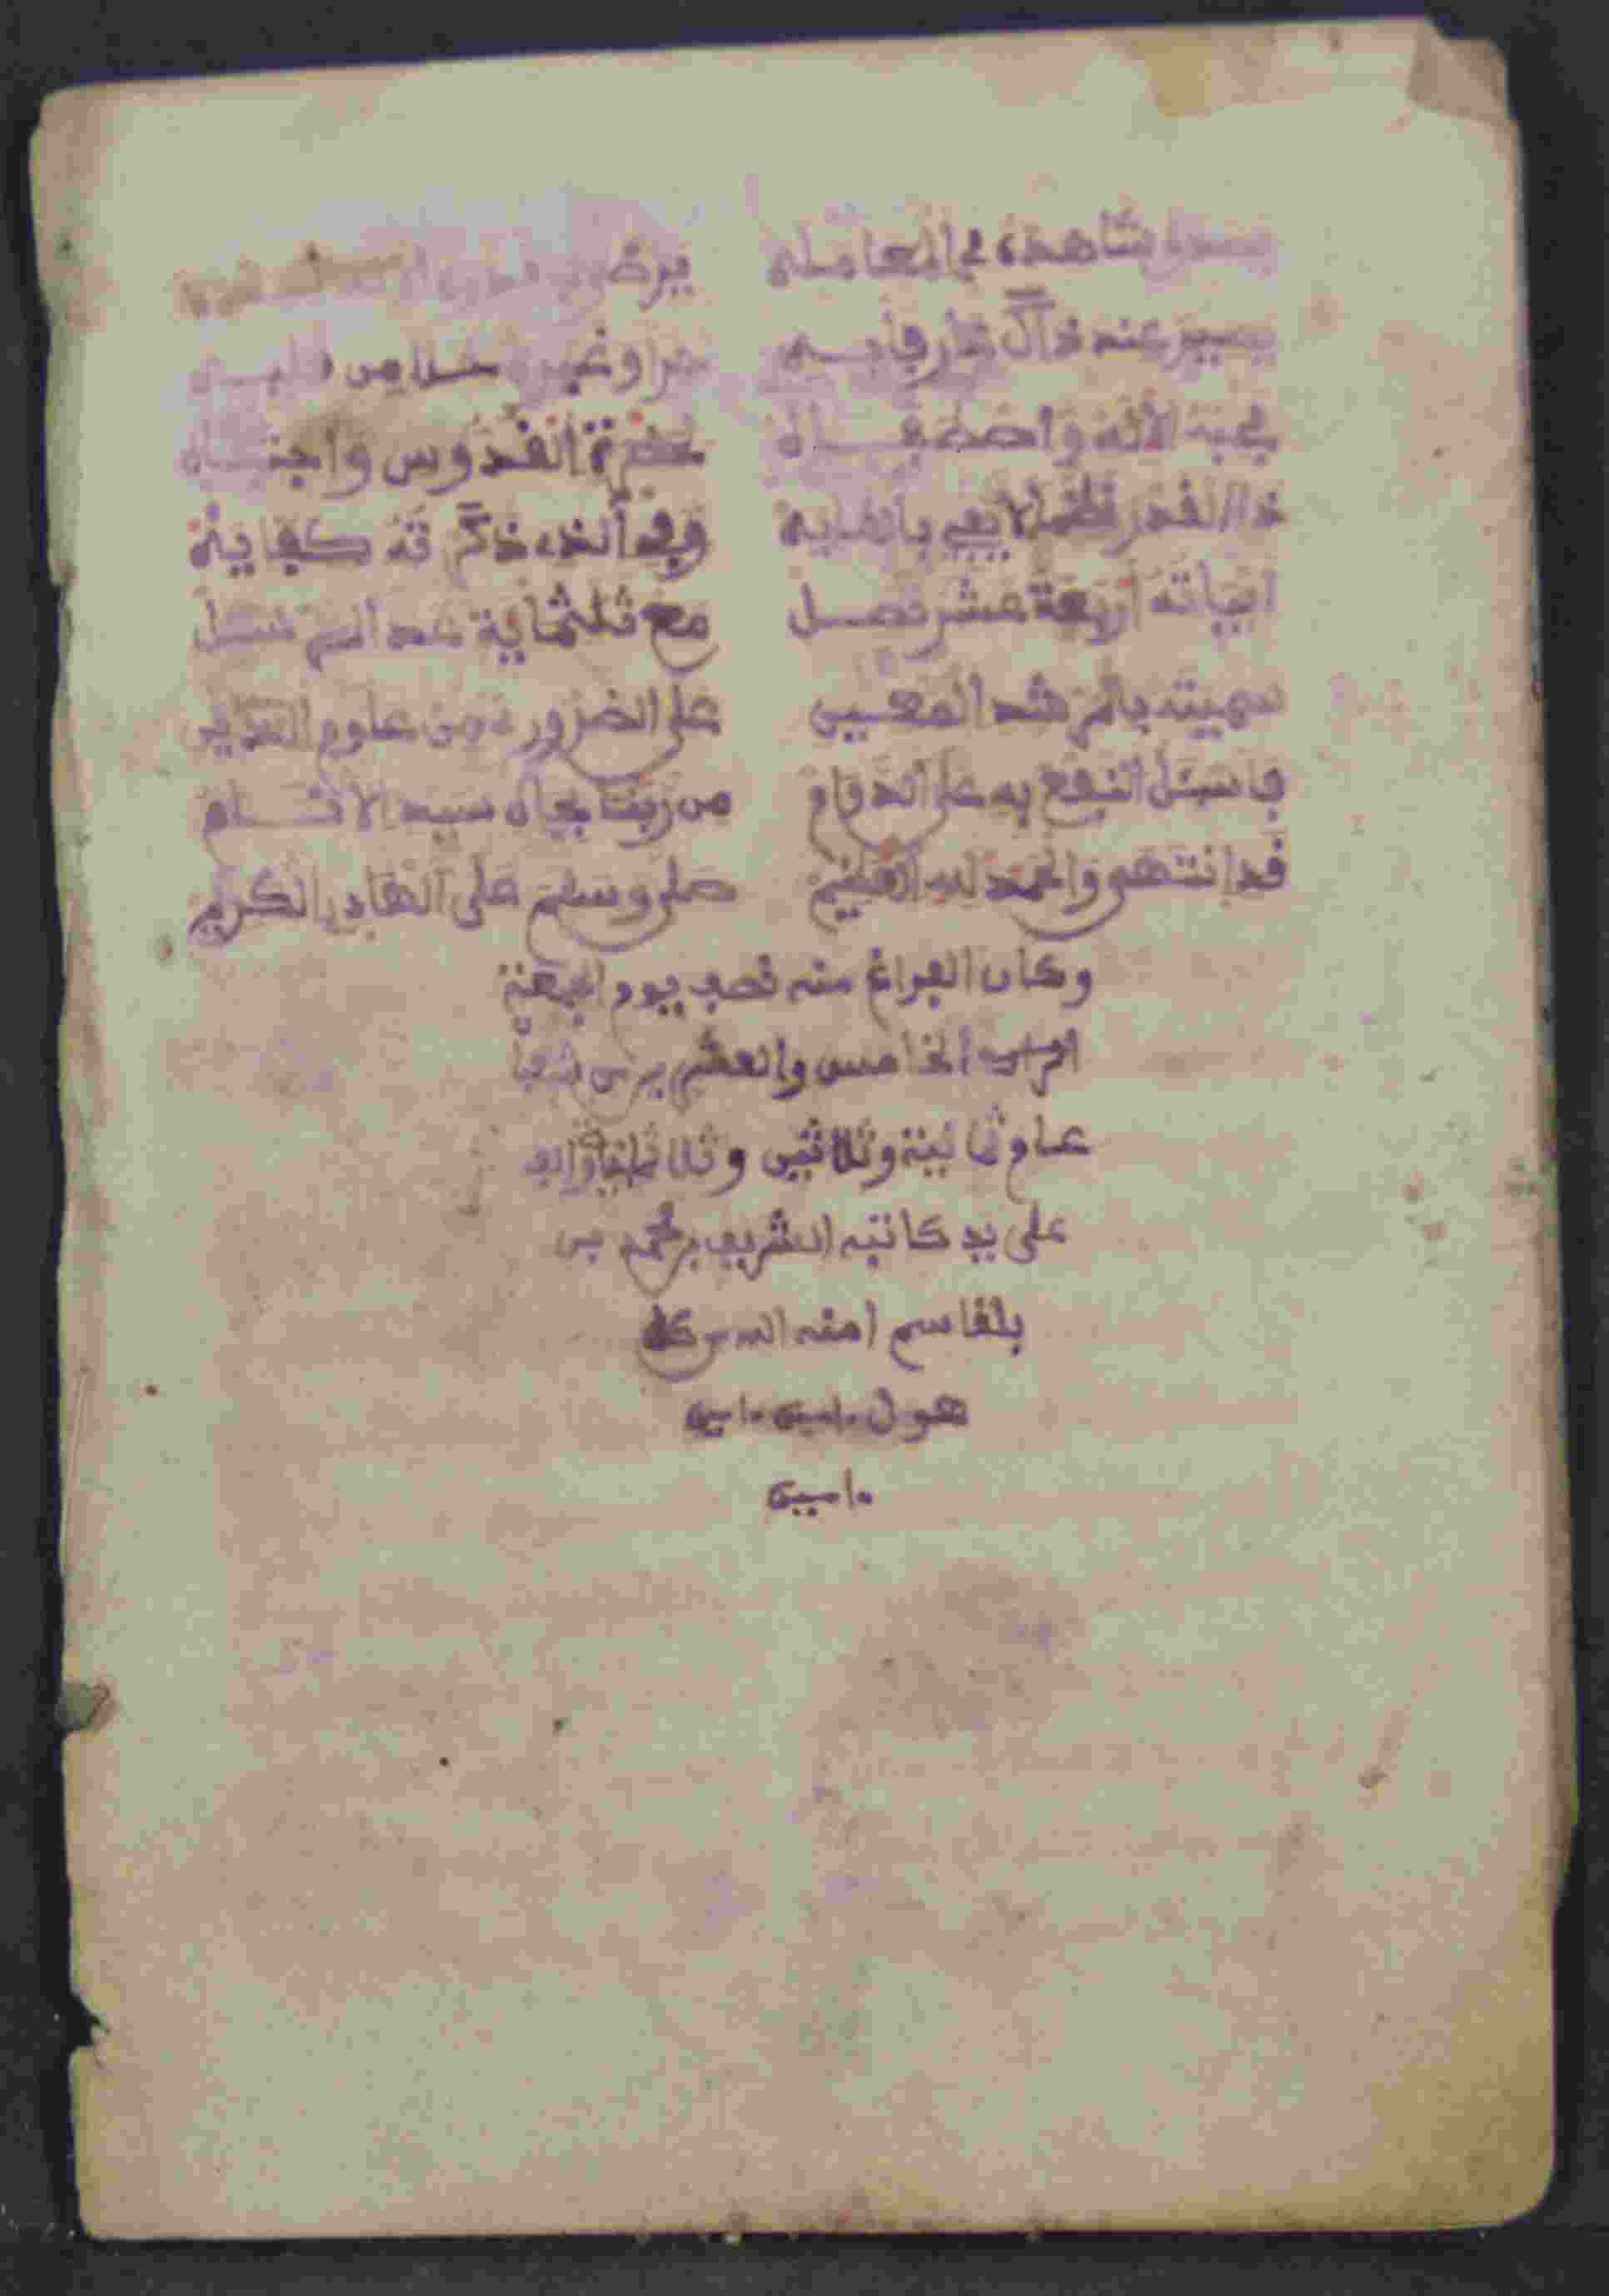 يشاهد في المعاملة يرض
يصير عند ذاك عارفا به حرا وغيره خلا من قلبه
فحبه الإله واصطفاه لحضرة القدوس واجتباه
ذا القدر نظما لا يفي بالغايه وفي الذي ذكرته كفاية
أبياته أربعة عشر تصل مع ثلثماية عد الرسل
سميته بالمرشد المعين على الضروري من علوم الدين
فاسئل النفع به على الدوام من ربنا بجاه سيد الانام
قد انتهى والحمد لله العظيم صلى وسلم على الهادي الكريم
وكان الفراغ منه نصف يوم الجمعة
الخامس والعشرين من
عام ثمانية وثلاثين وثلا
على يد كاتبه الشريف بن
بلقاسم امنه الله من كل
هول ءامين ءامين
ءامين